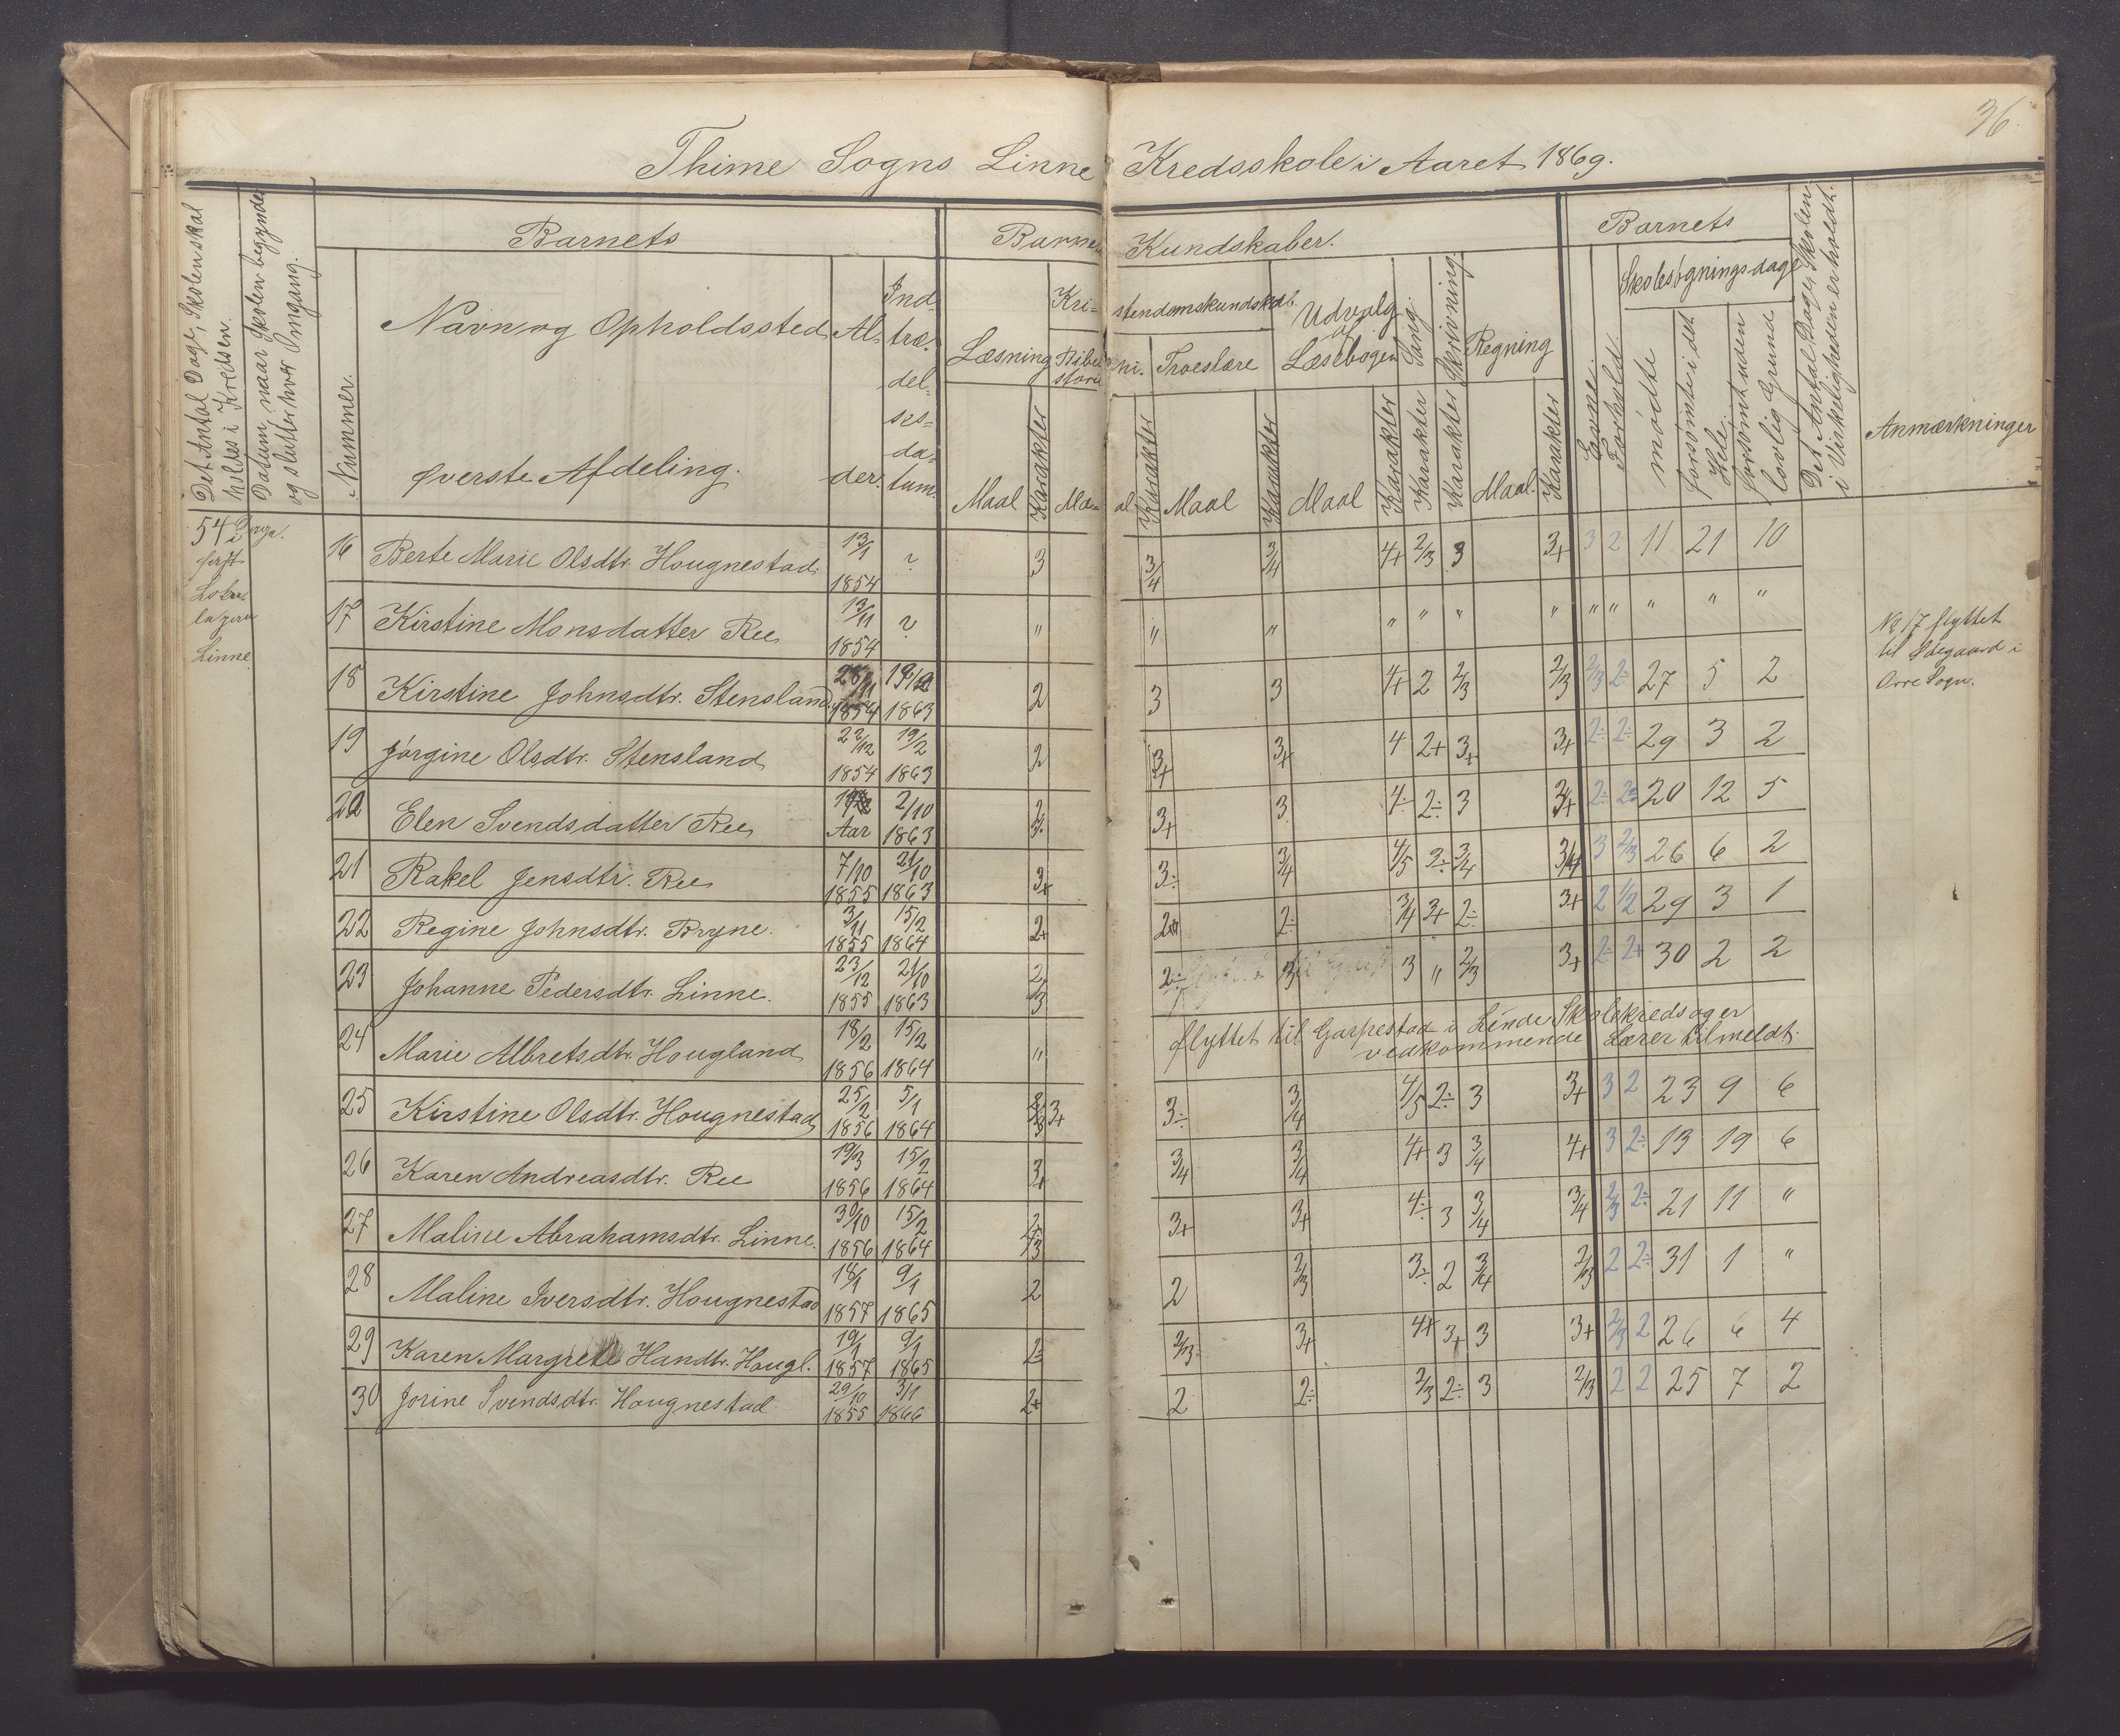 36.
Thime Sogns Linne Kredsskole i Aaret 1869.
Det Antal Dage, Skolen skal holdes i Kredsen.
Datum, naar Skolen begynder og slutter hver Omgang.
Nummer.
Barnets
Navn og Opholdssted
Øverste Afdeling.
Alder.
Indtrædelsesdatum.
Barnets Kundskaber.
Læsning
Kristendomskundskab.
Bibelhistorie
Troeslære
Udvalg af Læsebogen
Sang.
Skrivning
Regning
Maal Karakter Maal Karakter Maal Karakter Maal Karakter Karakter Karakter Maal. Karakter
Barnets
Evne.
Forhold.
Skolesøgningsdage
mødte
forsømte i det Hele
forsømt uden lovlig Grund
Det Antal Dage, Skolen i Virkeligheden er holdt.
Anmærkninger
54 Dage.
Linne
16 Berte Marie Olsdtr. Hougnestad. 13/1 1854 ? 3 3/4 3/4 4+ 2/3 3 3+ 3 2 11 21 10
17 Kirstine Monsdatter Ree 13/11 1854 ? " " " " " " " " " " " "
No 17 flyttet
til Ødegaard i
Orre Sogn.
18 Kirstine Johnsdtr. Stensland 1854 1863 2 3 3 4+ 2 2/3 2/3 2/3 2÷ 27 5 2
19 Jørgine Olsdtr. Stensland 22/12 1854 19/2 1863 2 3+ 3+ 4 2+ 3+ 3+ 2÷ 2÷ 29 3 2
20 Elen Svendsdatter Ree Aar 2/10 1863 3+ 3 4÷ 2÷ 3 2÷ 20 12 5
21 Rakel Jensdtr. Ree 7/10 1855 21/10 1863 3+ 3÷ 3/4 4/5 2÷ 3/4 3/4 3 2/3 26 6 2
22 Regine Johnsdtr. Bryne. 3/11 1855 15/2 1864 2+ 2+ 2÷ 3/4 3+ 2÷ 3+ 2 1/2 29 3 1
23 Johanne Pedersdtr. Linne. 23/12 1855 21/10 1863 2/3 2÷ 3 3 " 2/3 3+ 2÷ 2+ 30 2 2
24 Marie Albretsdtr. Hougland 18/2 1856 15/2 1864 " flyttet til Garpestad i Linde Skolekreds og er
vedkommende Lærer tilmeldt.
25 Kirstine Olsdtr. Hougnestad 25/2 1856 5/1 1864 3+ 3÷ 3/4 4/5 2÷ 3 3+ 3 2 23 9 6
26 Karen Andreasdtr. Ree 19/3 1856 15/2 1864 3+ 3/4 3/4 4+ 3 3/4 4+ 3 2÷ 13 19 6
27 Maline Abrahamsdtr. Linne. 30/10 1856 15/2 1864 2/3 3+ 3+ 4÷ 3 3/4 3/4 2/3 2÷ 21 11 "
28 Maline Iversdtr. Hougnestad 18/1 1857 9/1 1865 2 2 2/3 3÷ 2 3/4 2/3 2 2÷ 31 1 "
29 Karen Margrete Handtr. Hougl. 19/1 1857 9/1 1865 2÷ 2/3 3+ 4+ 3+ 3 3+ 2/3 2 26 6 4
30 Jorine Svendsdtr. Hougnestad 29/10 1855 3/1 1866 2+ 2 2÷ 2/3 2÷ 3 2/3 2 2 25 7 2